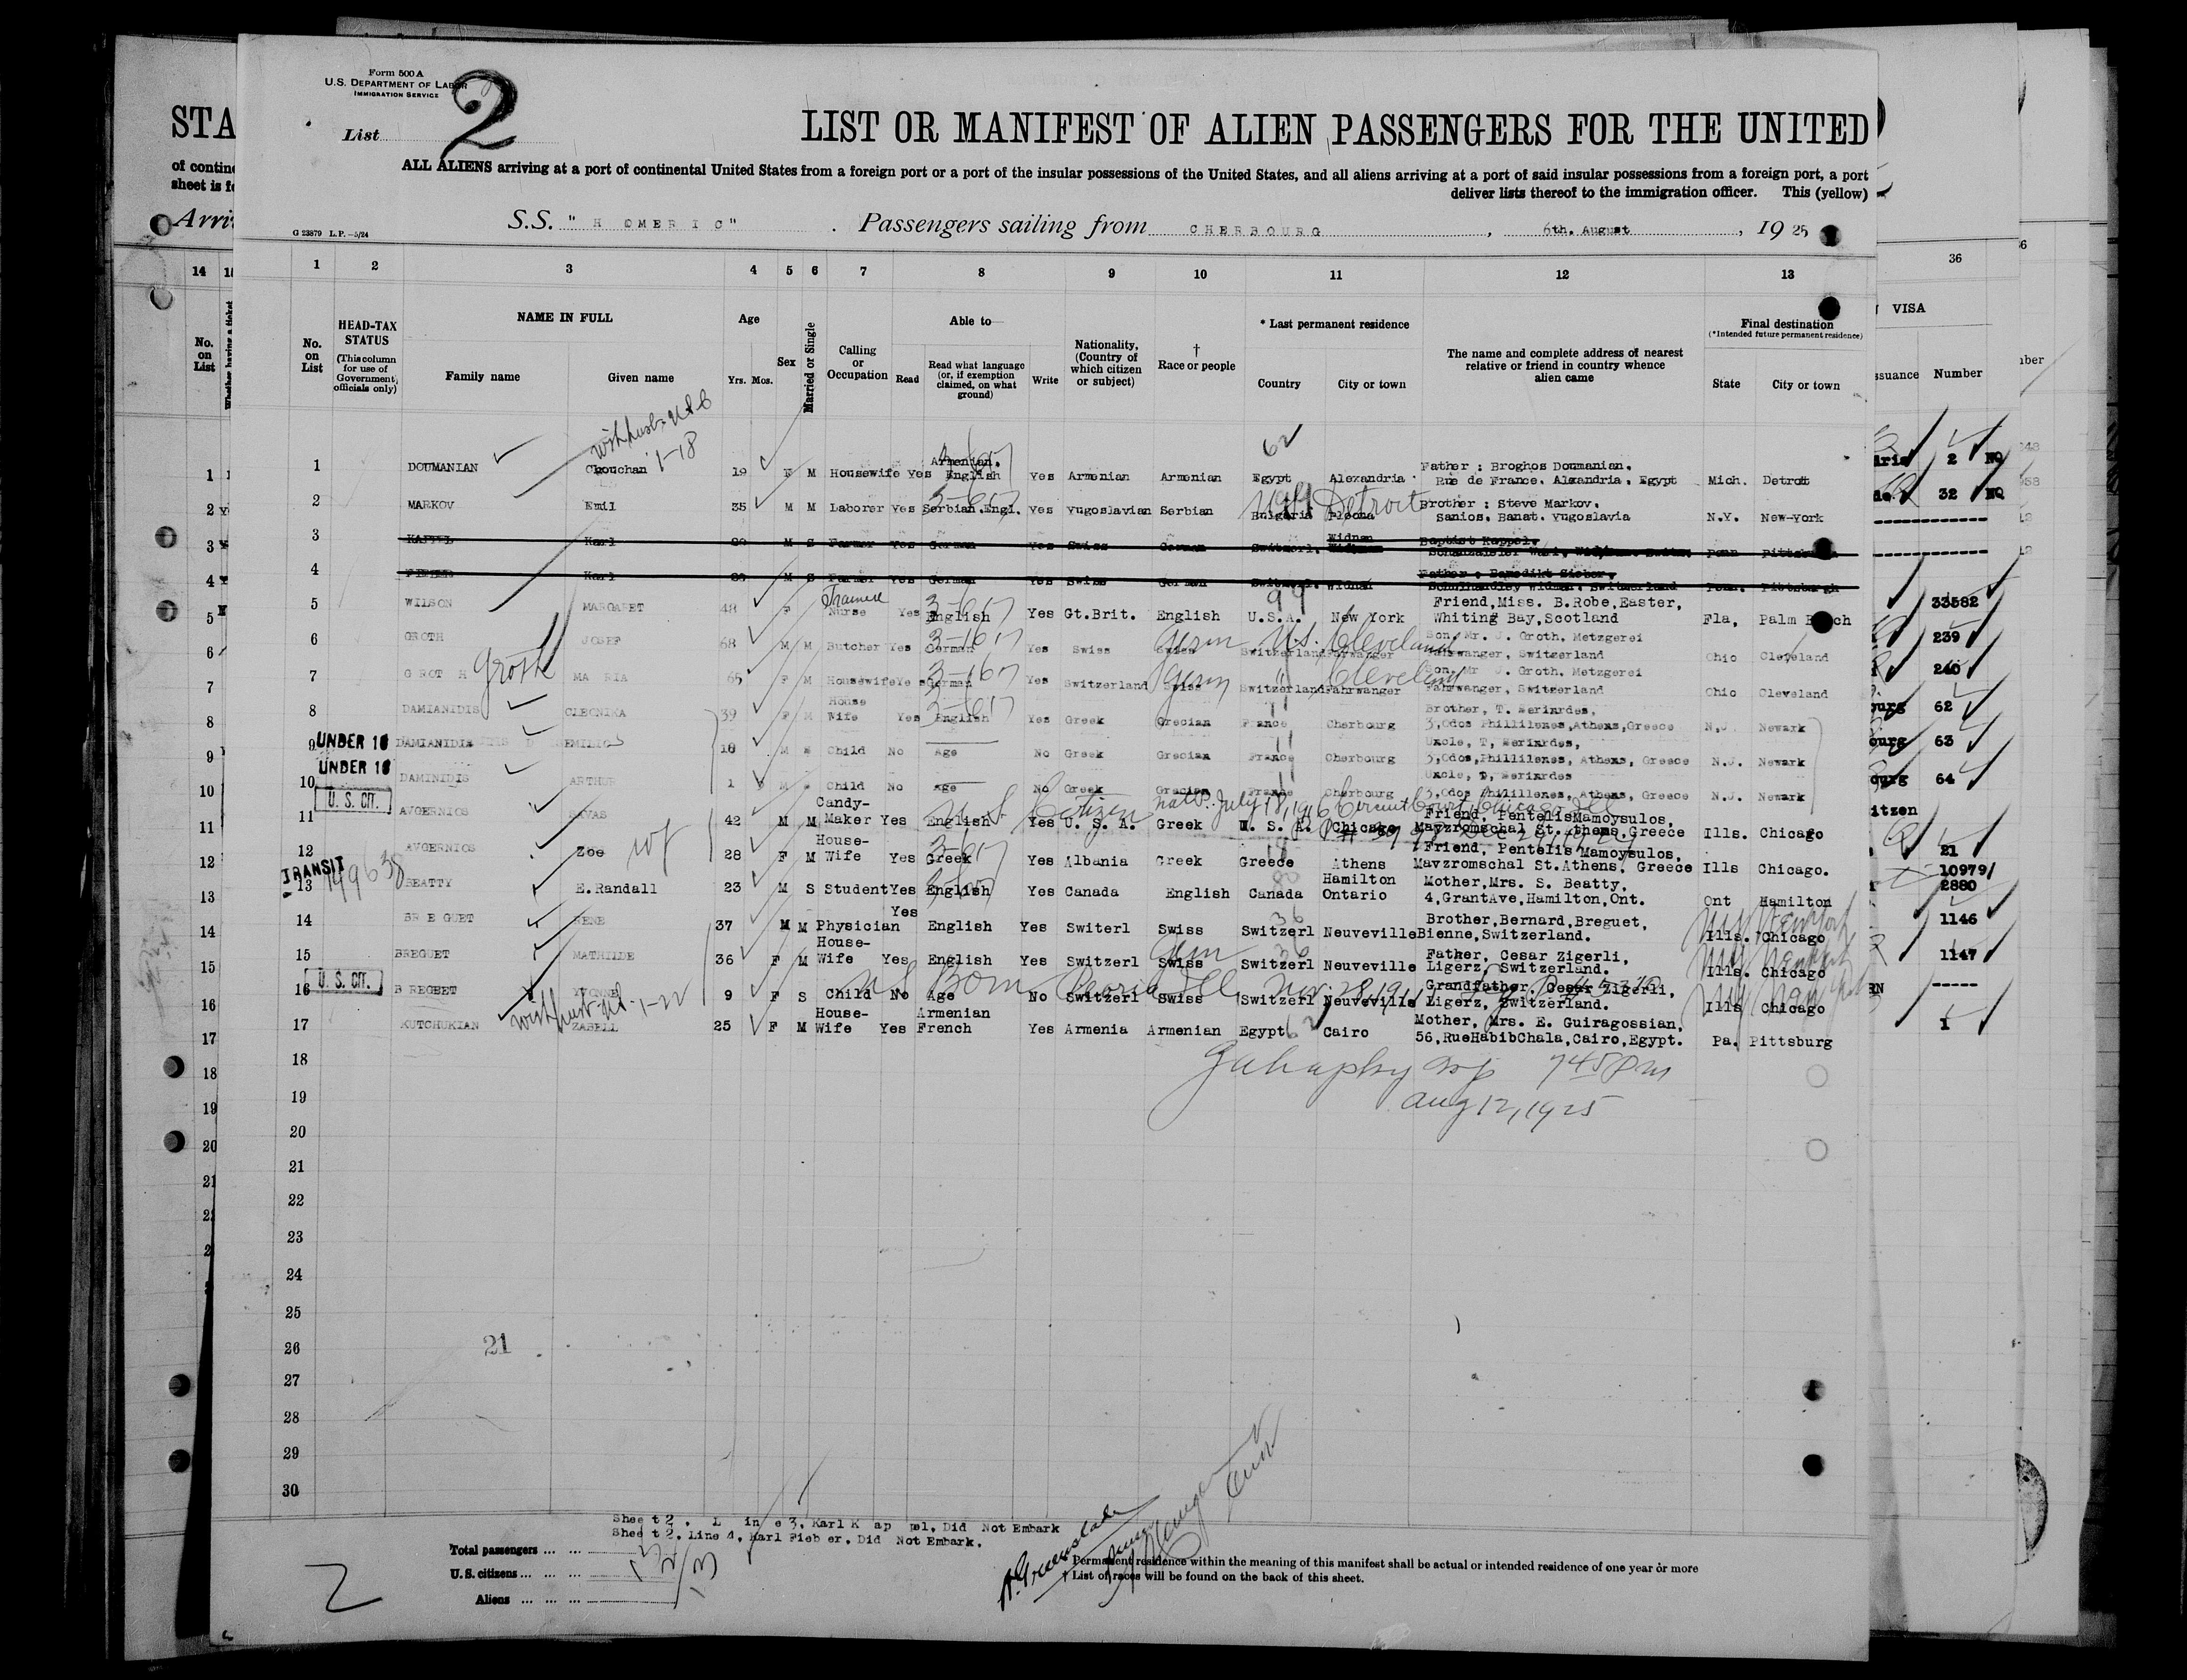 Form 500 A
U.S. DEPARTMENT OF LABOR
IMMIGRATION SERVICE
List 2
LIST OR MANIFEST OF ALIEN PASSENGERS FOR THE UNITED
STA
ALL ALIENS arriving at a port of continental United States from a foreign port or a port of the insular possessions of the United States, and all aliens arriving at a port of said insular possessions from a foreign port, a port
deliver lists thereof to the immigration officer. This (yellow)
of contine
sheet is fo
Arri
G 23879 L.P.—5/24
S.S. "H OMER I C". Passengers sailing from CHERBOURG, 6th. August, 19 25
1 2 3 4 5 6 7 8 9 10 11 12 13
14 36
No. on List
HEAD-TAX STATUS
(This column for use of Government officials only)
NAME IN FULL
Family name Given name
Age
Yrs. Mos.
Sex
Married or Single
Calling or Occupation
Able to
Read
Read what language (or, if exemption claimed, on what ground)
Write
Nationality, (Country of which citizen or subject)
† Race or people
* Last permanent residence
Country City or town
The name and complete address of nearest relative or friend in country whence alien came
Final destination
(*Intended future permanent residence)
State City or town
VISA
ssuance Number
with husb. 1-18
1 DOUMANIAN Chouchan 19 F M Housewife Yes Armenian. English Yes Armenian Armenian Egypt Alexandria Father : Broghos Doumanian. Rue de France. Alexandria. Egypt Mich. Detroit 2 NQ
2 MARKOV Emil 35 M M Laborer Yes Serbian.Engl. Yes Yugoslavian Serbian Bulgaria Plecna Detroit Brother : Steve Markov. Sanios. Banat. Yugoslavia N.Y. New-York 32 NQ
3 KAPPEL Karl M S Farmer Yes German Yes Swiss German Switzerl. Widnan Baptist Kappel. Penn Pittsburgh
4 Karl M S Farmer Yes German Yes Swiss German Switzerl. Widnan Father : Benedikt Sieber. Switzerland Penn. Pittsburgh
5 WILSON MARGARET 48 F Trained Nurse Yes English Yes Gt.Brit. English U.S.A. New York Friend,Miss. B.Robe,Easter, Whiting Bay,Scotland Fla, Palm B ch 33582
6 GROTH JOSEF 68 M M Butcher Yes German Yes Swiss Swiss Germ Switzerland Fahrwanger U.S. Cleveland Son, Mr. J. Groth. Metzgerei Fahrwanger, Switzerland Ohio Cleveland 239
7 G ROT H Groth MA RIA 65 F M Housewife Yes German Yes Switzerland Swiss Germ Switzerland Fahrwanger Cleveland Son, Mr J. Groth. Metzgerei Fahrwanger, Switzerland Ohio Cleveland 240
8 DAMIANIDIS CLEONIKA 39 F M House Wife Yes English Yes Greek Grecian France Cherbourg Brother, T. Meriardes, 3,Odos Phillilenes,Athens,Greece N.J Newark 62
UNDER 16
9 DAMIANIDIS EMILIOS 10 M S Child No Age No Greek Grecian France Cherbourg Uncle, T, Meriardes, 3,Odos,Phillilenes, Athens, Greece N.J. Newark 63
UNDER 16
10 DAMINIDIS ARTHUR 1 M S Child No Age No Greek Grecian France Cherbourg Uncle, T, Meriardes 3,Odos,Phillilenes, Athens, Greece N.J. Newark 64
U. S. CIT.
U S Citizen Nat'd. July 18, 1916 Circuit Court, Chicago Ill
11 AVGERNIOS SAVAS 42 M M Candy-Maker Yes English Yes U. S. A. Greek U. S. A. Chicago Friend, PentelisMamoysulos, Mavzromschal St. Athens,Greece Ills. Chicago itizen
12 AVGERNIOS Zoe 28 F M House-Wife Yes Greek Yes Albania Greek Greece Athens Friend, Pentelis Mamoysulos, Mavzromschal St.Athens, Greece Ills Chicago. 21
TRANSIT
13 BEATTY E.Randall 23 M S Student Yes English Yes Canada English Canada Hamilton Ontario Mother,Mrs. S. Beatty, 4,GrantAve,Hamilton,Ont. Ont Hamilton 10979/2880
14 BR E GUET RENE 37 M M Physician Yes English Yes Switerl Swiss Switzerl Neuveville Brother,Bernard,Breguet, Bienne,Switzerland. Ills. Chicago 1146
15 BREGUET MATHILDE 36 F M House-Wife Yes English Yes Switzerl Swiss Germ Switzerl Neuveville Father, Cesar Zigerli, Ligerz, Switzerland. Ills. Chicago 1147
U. S. CIT.
U S Born Peoria Ill, Nov.
16 B REGEET YVONNE 9 F S Child No Age No Switzerl Swiss Switzerl Neuveville Grandfather, Cesar Zigerli, Ligerz, Switzerland. Ills Chicago -----
with husb. 1-22
17 KUTCHUKIAN ZABELL 25 F M House-Wife Yes Armenian French Yes Armenia Armenian Egypt Cairo Mother, Mrs. E. Guiragossian, 56,RueHabibChala,Cairo,Egypt. Pa. Pittsburg 1
18
745 Pm
19
Aug 12, 1925
20
21
22
23
24
25
26
21
27
28
29
30
Sheet 2. L in e 3, Karl K ap pel, Did Not Embark
Sheet 2. Line 4, Karl Fieb er. Did Not Embark.
Total passengers ... ...
U. S. citizens ... ... ...
Aliens ... ... ...
2
* Permanent residence within the meaning of this manifest shall be actual or intended residence of one year or more
† List of races will be found on the back of this sheet.